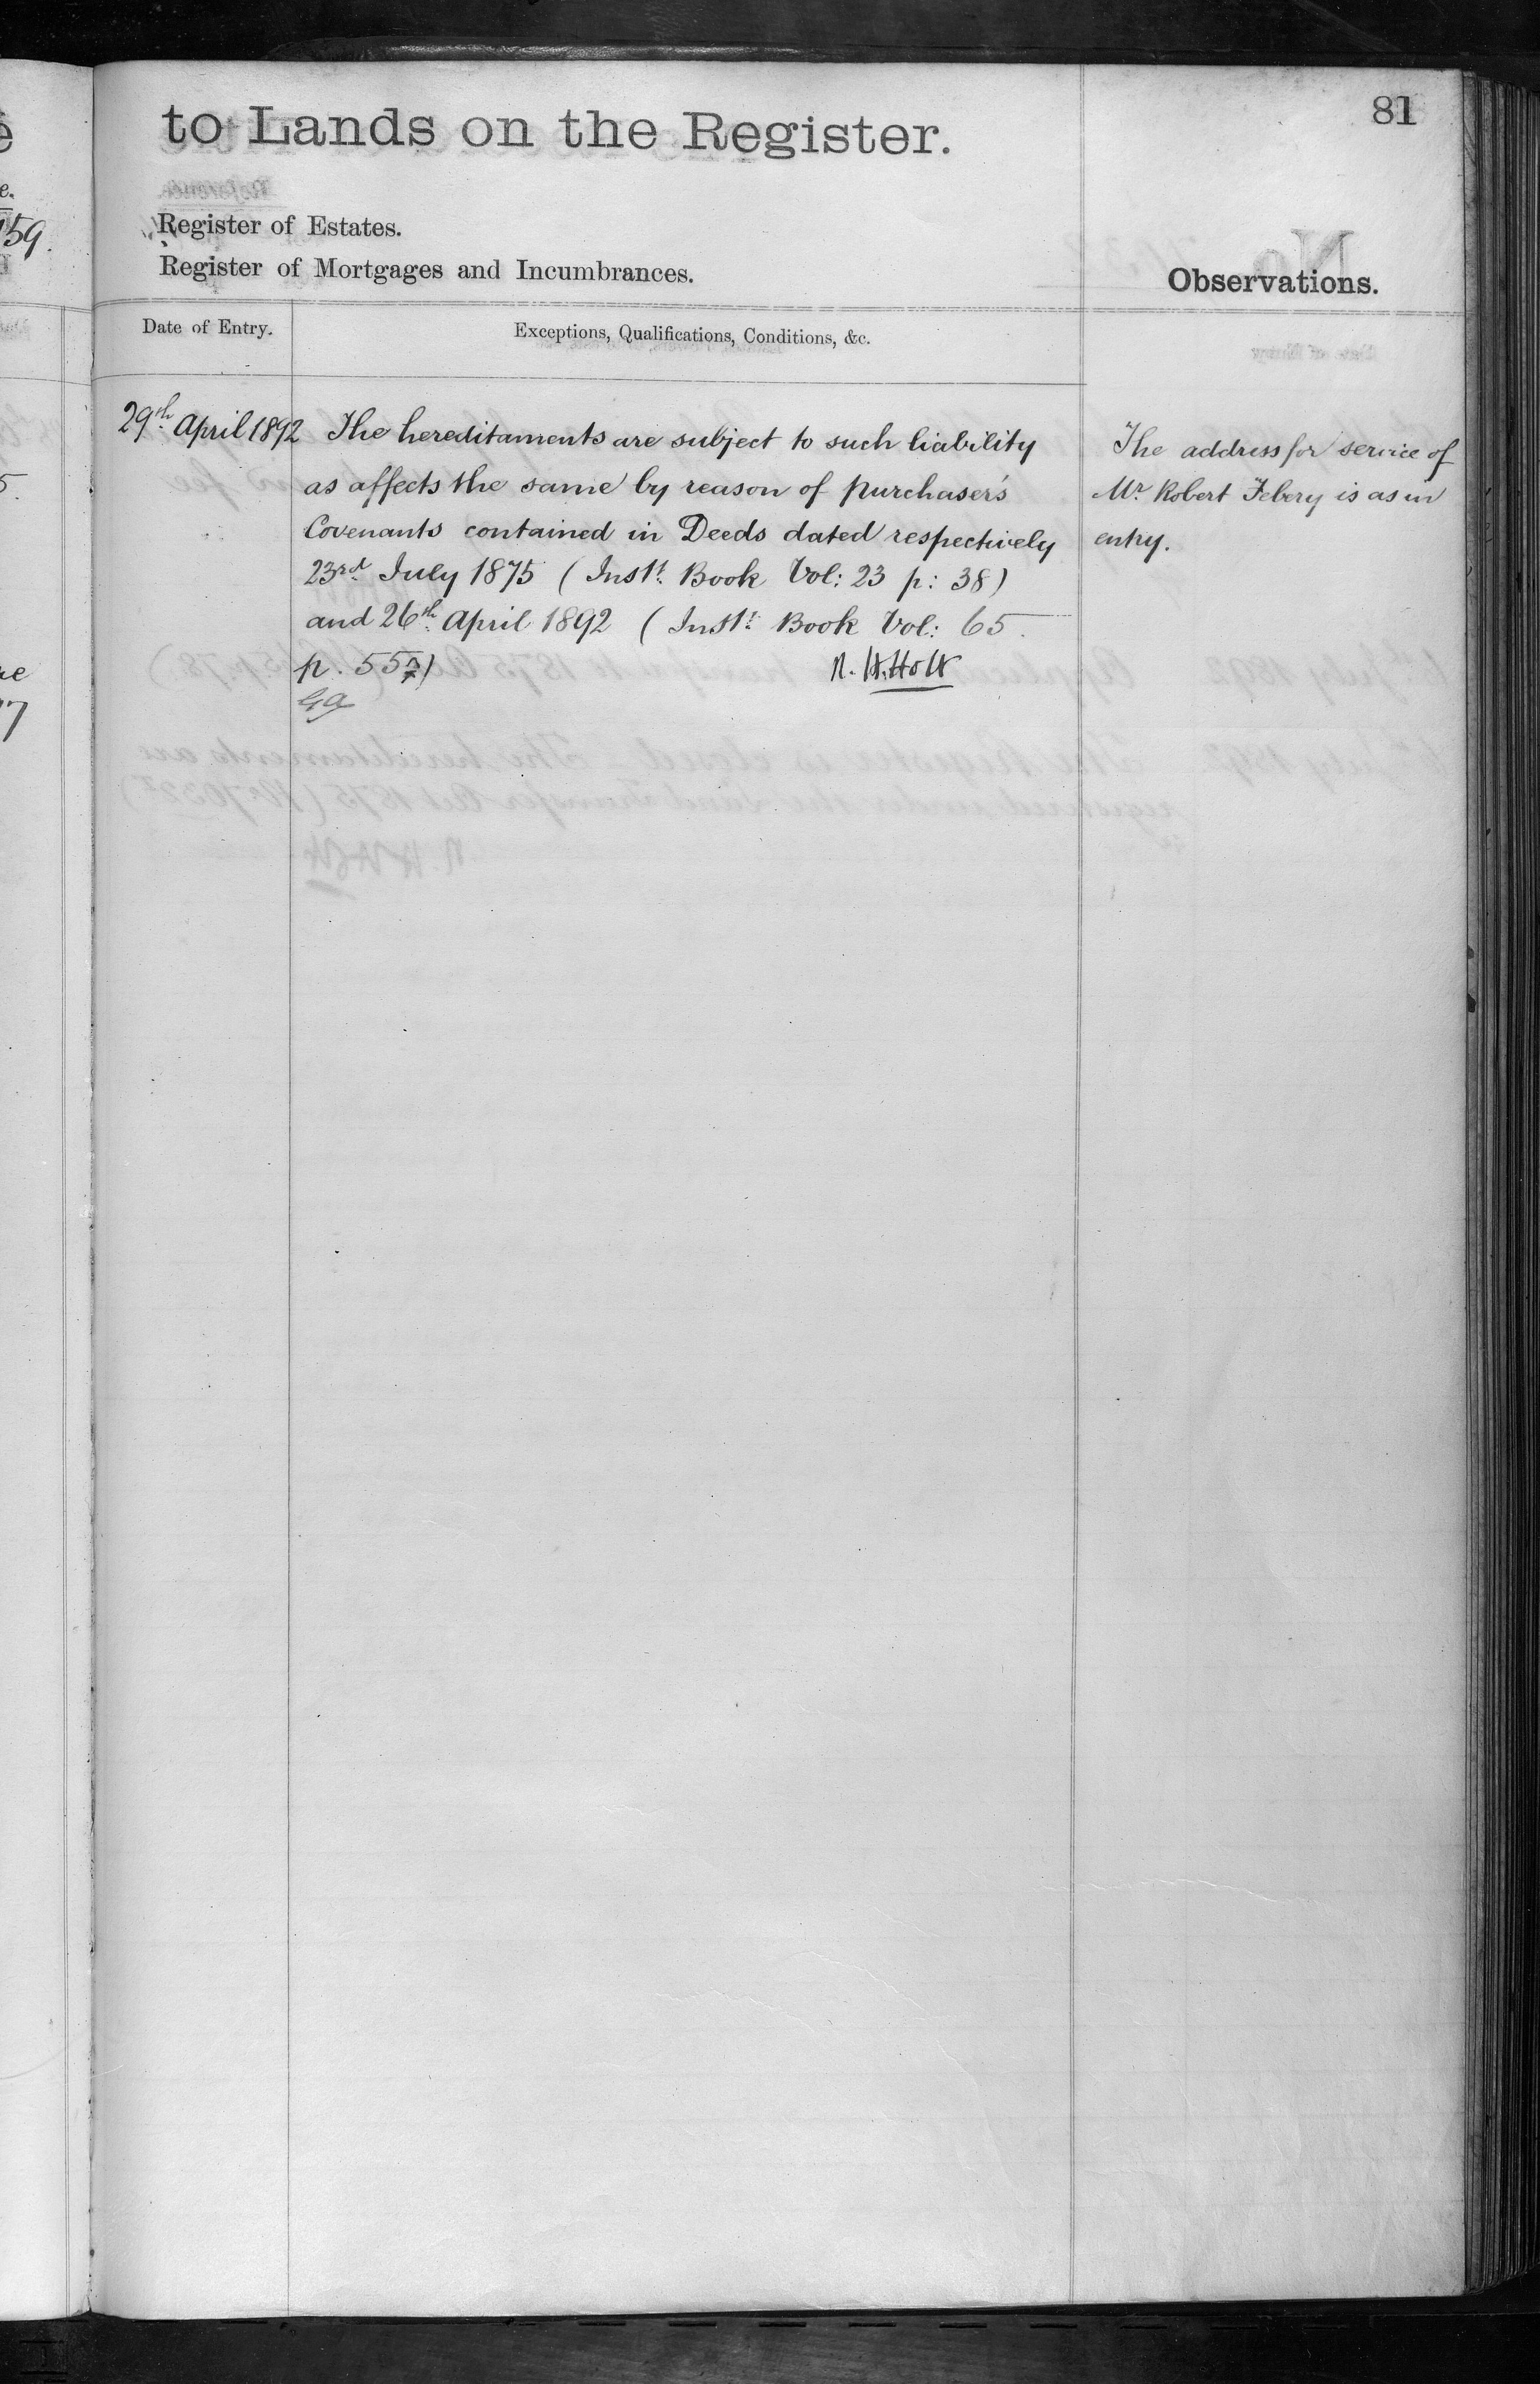 81
to Lands on the Register.
Register of Estates.
Register of Mortgages and Incumbrances.
Observations.
Date of Entry.
Exceptions, Qualifications, Conditions, &c.
29th April 1892
The hereditaments are subject to such liability
as affects the same by reason of purchaser's
Covenants contained in Deeds dated respectively
23rd July 1875 (Instt. Book Vol: 23 p: 38)
and 26th April 1892 (Instt. Book Vol: 65.
p. 557)
R. H. Holt
The address for service of
Mr. Robert Febery is as in
entry.
159.